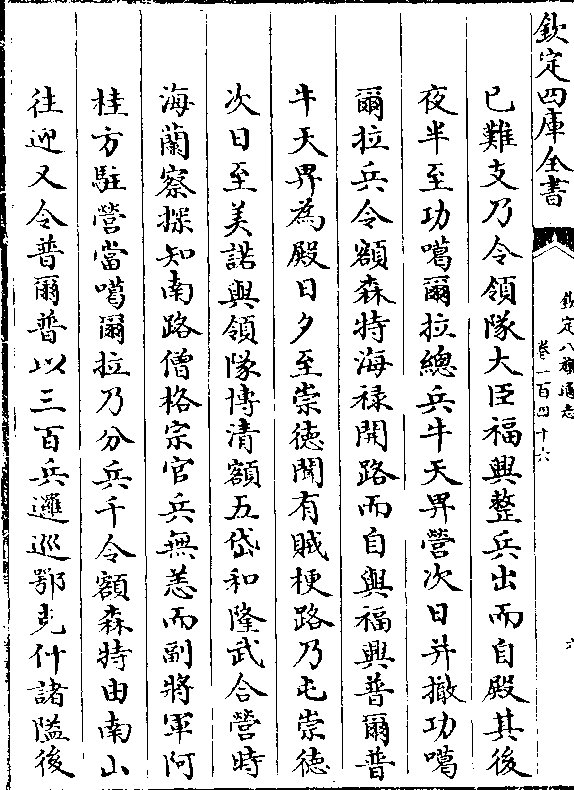 欽定四庫全書
欽定八旗通志
卷一百四十六
六
已難支乃令領隊大臣福興整兵出而自殿其後
夜半至功噶爾拉總兵牛天畀營次日并撤功噶
爾拉兵令額森特海祿開路而自與福興普爾普
牛天畀為殿日夕至崇德聞有賊梗路乃屯崇德
次日至美諾與領隊博清額五岱和隆武合營時
海蘭察探知南路僧格宗官兵無恙而副將軍阿
桂方駐營當噶爾拉乃分兵千令額森特由南山
往迎又令普爾普以三百兵邏巡鄂克什諸隘後